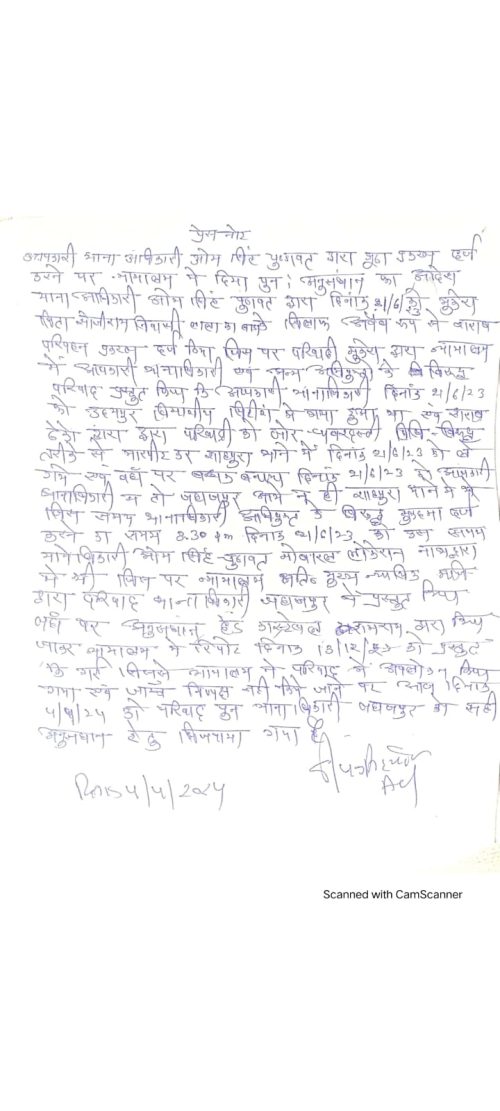 प्रेस नोट
आबकारी थाना अधिकारी ओम सिंह चुण्डावत द्वारा झूठा प्रकरण दर्ज
करने पर न्यायालय ने दिया पुन: अनुसंधान का आदेश
थाना अधिकारी ओम सिंह चुण्डावत द्वारा दिनांक 21/6/23 को मुकेश
पिता निवासी के खिलाफ अवैध रूप से शराब
परिवहन प्रकरण दर्ज किया जिस पर परिवादी मुकेश द्वारा न्यायालय
में आबकारी थानाधिकारी एवं अन्य के विरूद्ध
परिवाद प्रस्तुत किया कि आबकारी थानाधिकारी दिनांक 21/6/23
को उदयपुर विभागीय मे गया हुआ था एवं शराब
द्वारा परिवादी को जोर जबरदस्ती विधि विरूद्ध
तरीके से मारपीट कर शाहपुरा थाने में दिनांक 21/6/23 को ले
गये एवं वहाँ पर बंधक बनाया दिनांक 21/6/23 को आबकारी
थानाधिकारी न तो जहाजपुर थाने में ही शाहपुरा थाने में थे
जिस समय थानाधिकारी के विरूद्ध मुकदमा दर्ज
करने का समय 8.30 pm दिनांक 21/6/23 को उस समय
थानाधिकारी ओम सिंह चुण्डावत मोबाइल लोकेशन
में थी जिस पर न्यायालय मुख्य न्यायिक मजि
द्वारा परिवाद थानाधिकारी जहाजपुर को प्रस्तुत किया
वहाँ पर अनुसंधान हेड कांस्टेबल द्वारा किया
जाकर न्यायालय में रिपोर्ट दिनांक 13/12/23 को प्रस्तुत
की गई जिसमे न्यायालय ने परिवाद को अवलोकन किया
गया एवं जांच निष्पक्ष नही किये जाने पर आज दिनांक
4/4/24 को परिवाद पुन थानाधिकारी जहाजपुर को सही
अनुसंधान हेतु भिजवाया गया है
4/4/2024
Adv
Scanned with CamScanner